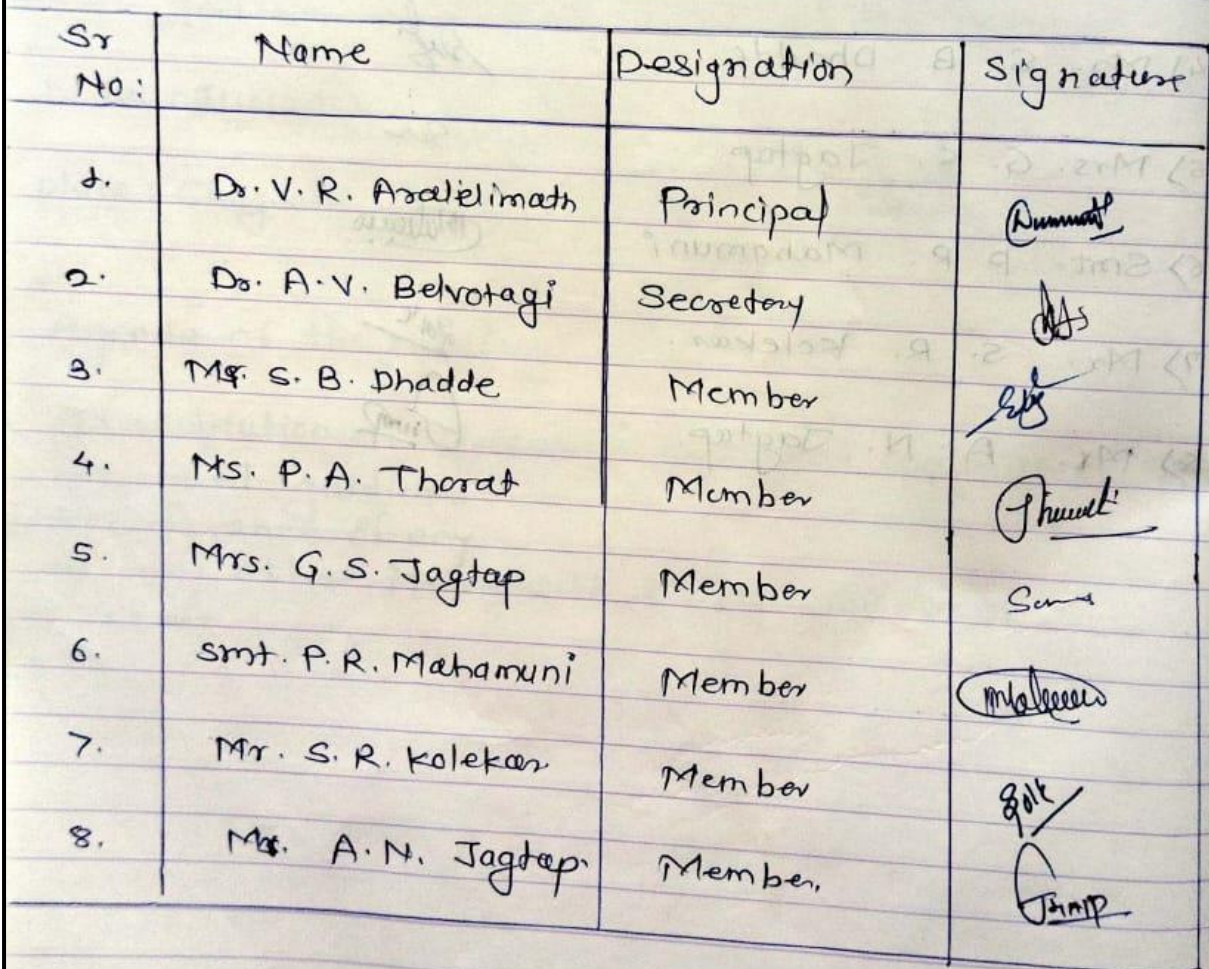 Sr No: Name Designation Signature
1. Dr. V. R. Aralelimath Principal
2. Dr. A.V. Belvotagi Secretory
3. Mr. S. B. Dhadde Member
4. Ms. P. A. Thorat Member
5. Mrs. G. S. Jagtap Member
6. Smt. P. R. Mahamuni Member
7. Mr. S. R. Kolekar Member
8. Mr. A. N. Jagtap. Member.